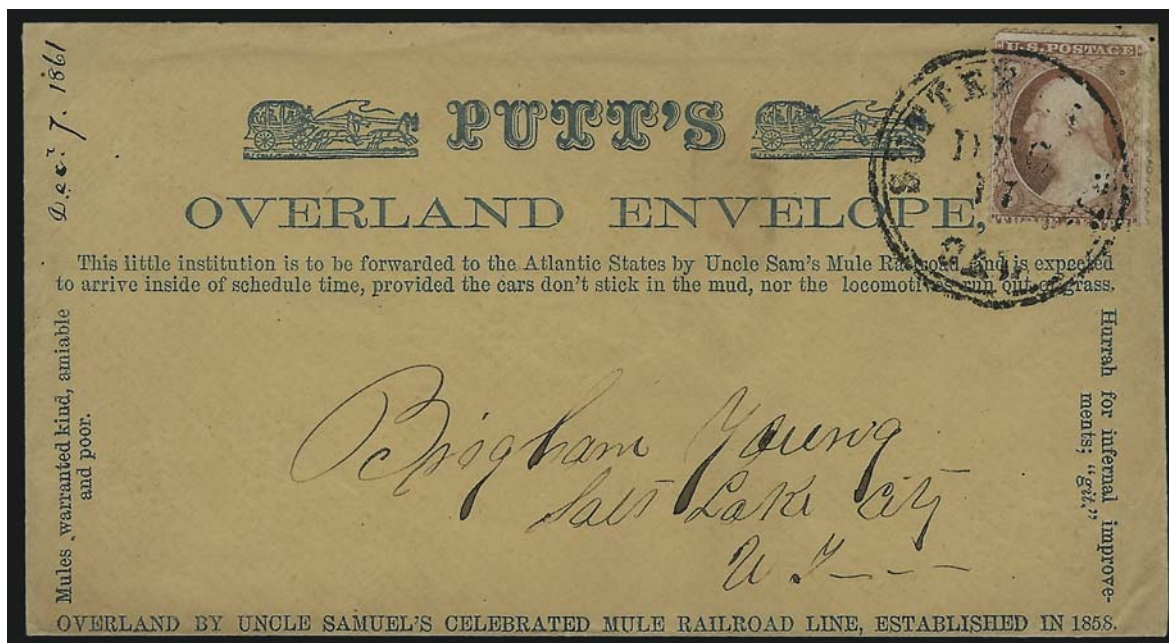 Dec 7. 1861
U.S. POSTAGE
PUTT'S
SUTTER
DEC
CAL
OVERLAND ENVELOPE,
This little institution is to be forwarded to the Atlantic States by Uncle Sam's Mule Railroad, and is expected
to arrive inside of schedule time, provided the cars don't stick in the mud, nor the locomotives run out of grass.
Mules warranted kind, amiable
and poor.
Hurrah for infernal improve-
ments; "git."
Brigham Young
Salt Lake City
U T
OVERLAND BY UNCLE SAMUEL'S CELEBRATED MULE RAILROAD LINE, ESTABLISHED IN 1858.